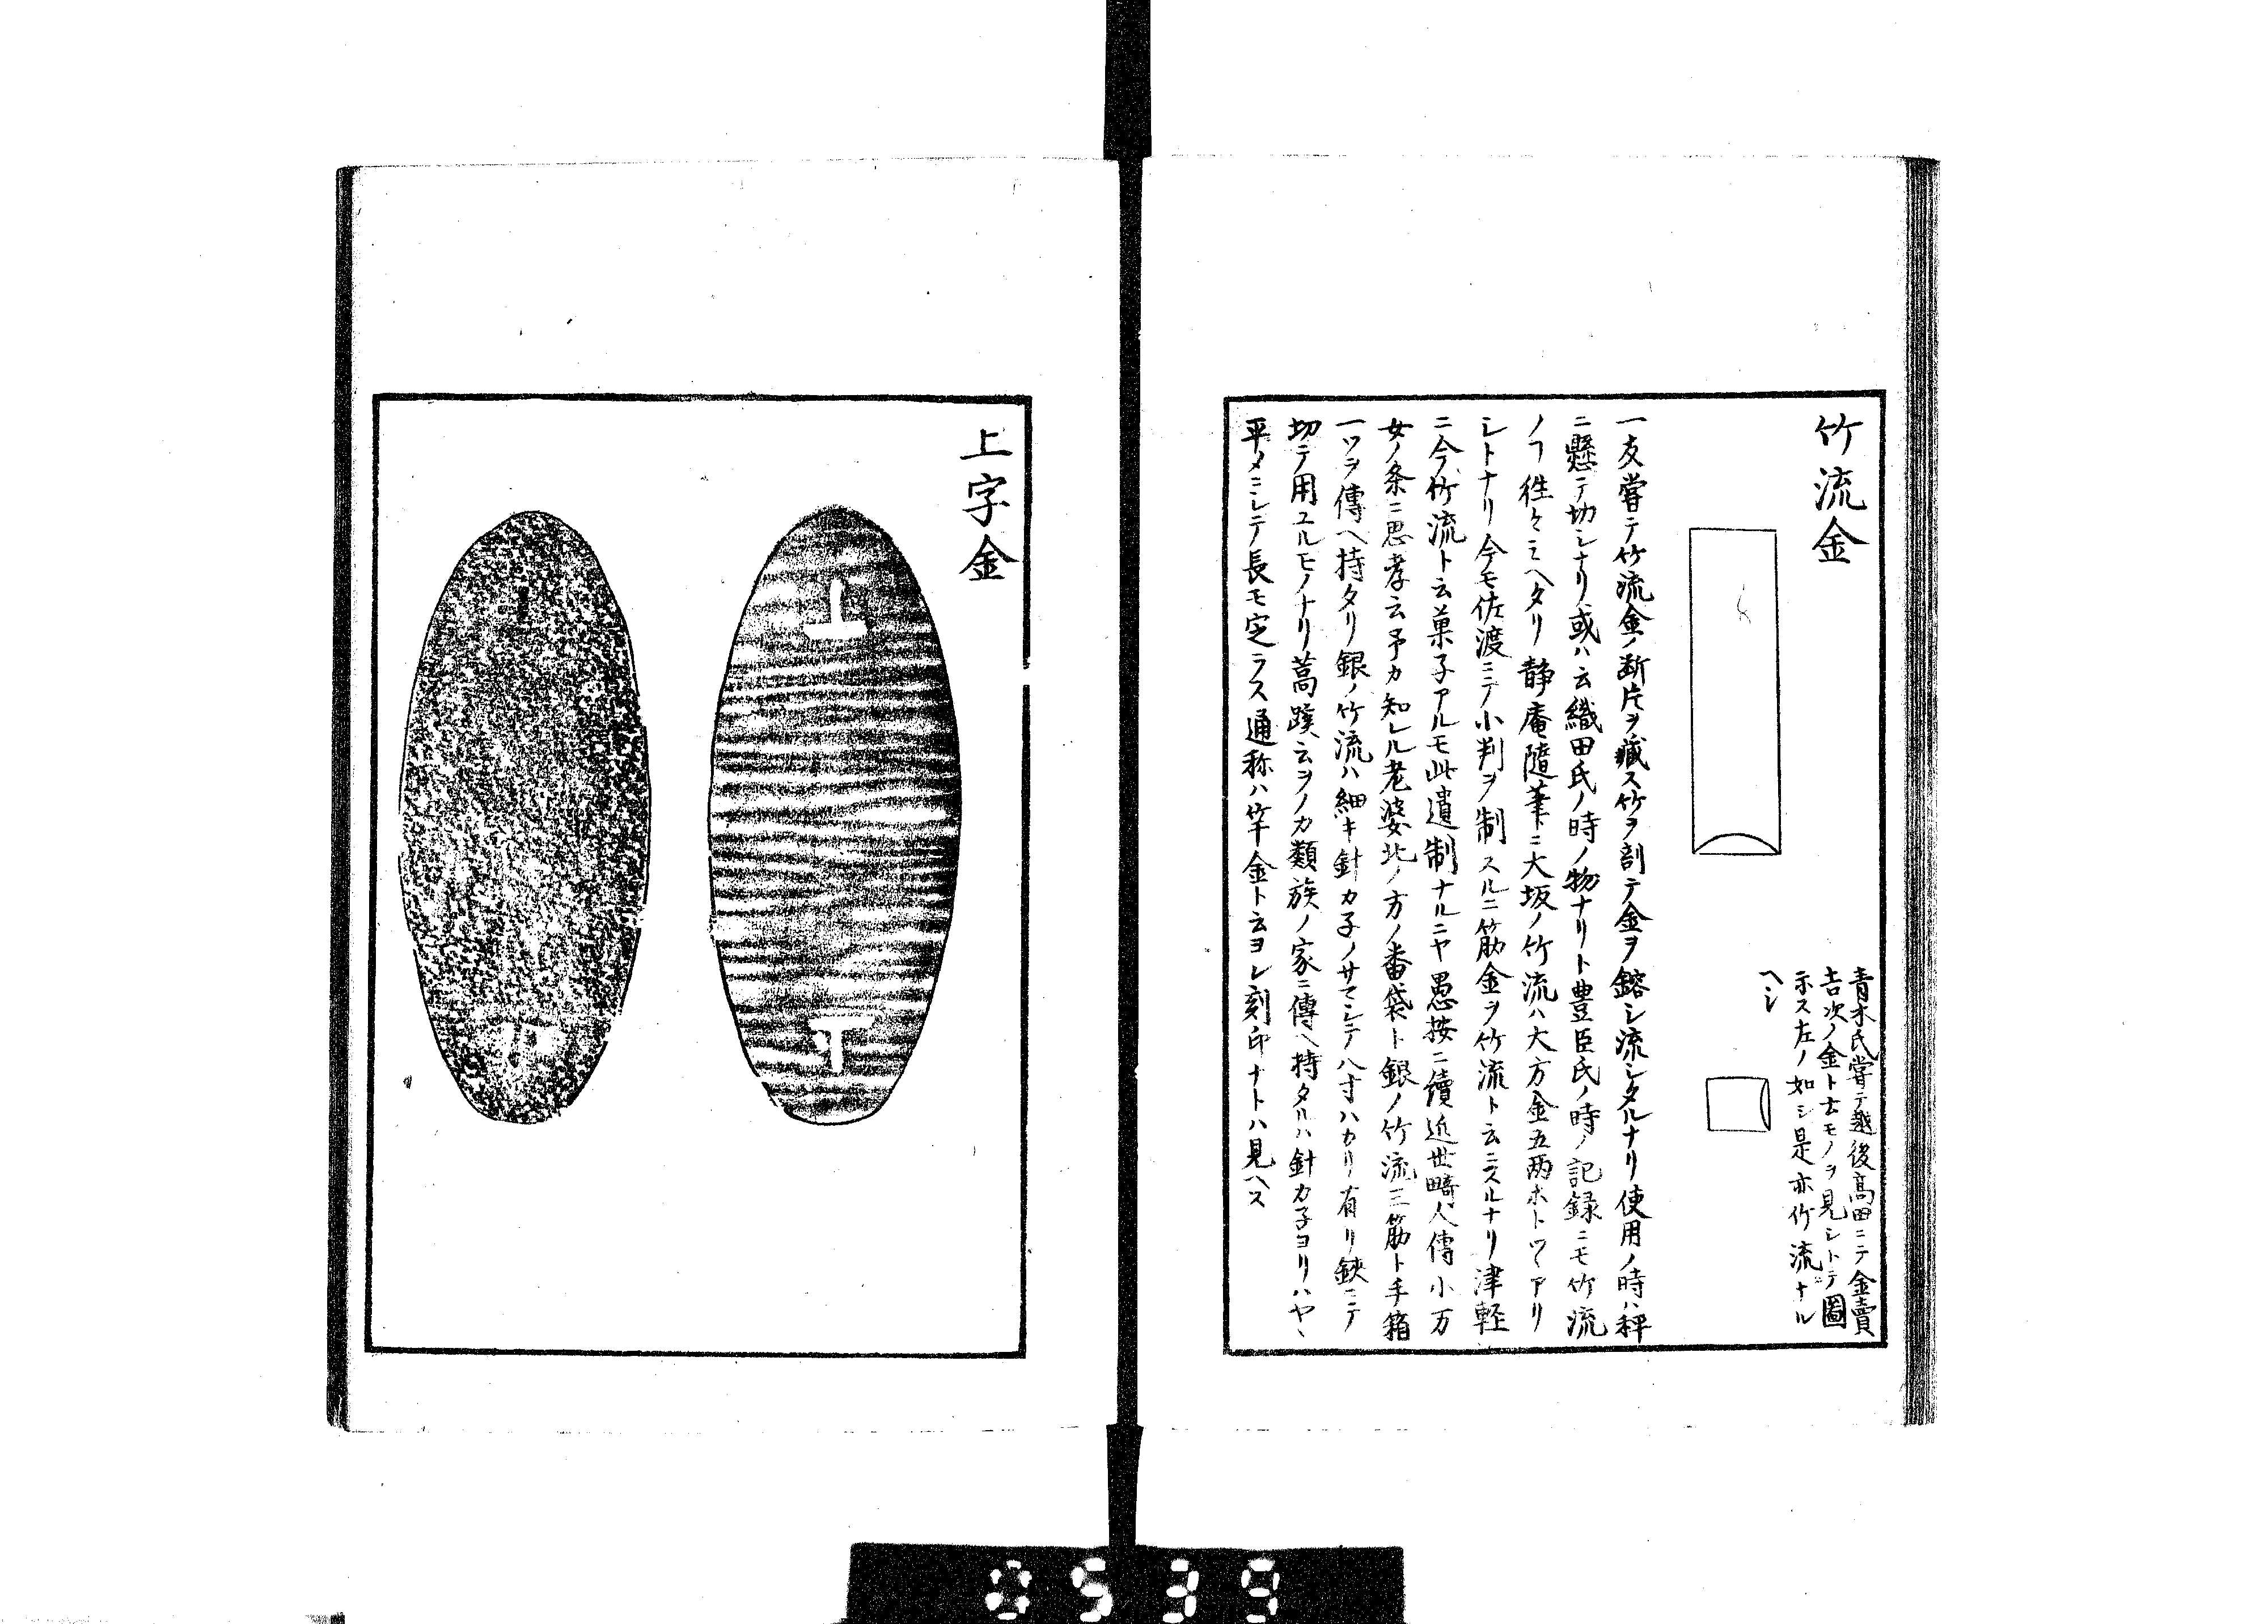 竹流金
青木氏嘗テ越後高田ニテ金賣
吉次ノ金ト云モノヲ見シトテ圖
示ス左ノ如シ是亦竹流ナル
ヘシ
一友嘗テ竹流金ノ断片ヲ藏ス竹ヲ剖テ金ヲ鎔シ流シタルナリ使用ノ時ハ秤
ニ懸テ切シナリ或ハ云織田氏ノ時ノ物ナリト豊臣氏ノ時ノ記録ニモ竹流
ノヿ往々ミヘタリ静庵隨筆ニ大坂ノ竹流ハ大方金五两ホトツヽアリ
シトナリ今モ佐渡ニテ小判ヲ制スルニ筋金ヲ竹流ト云ニスルナリ津軽
ニ今竹流ト云菓子アルモ此遺制ナルニヤ愚按ニ續近世畸人傳小万
女ノ条ニ思孝云予カ知レル老婆北ノ方ノ番袋ト銀ノ竹流三筋ト手箱
一ツヲ傳ヘ持タリ銀ノ竹流ハ細キ針カ子ノサマシテ八寸ハカリ有リ鋏ニテ
切テ用ユルモノナリ蒿蹊云ヲノカ類族ノ家ニ傳ヘ持タルハ針カ子ヨリハヤヽ
平メニシテ長モ定ラス通称ハ竿金ト云ヨレ刻印ナトハ見ヘス
上字金
上
下
0539